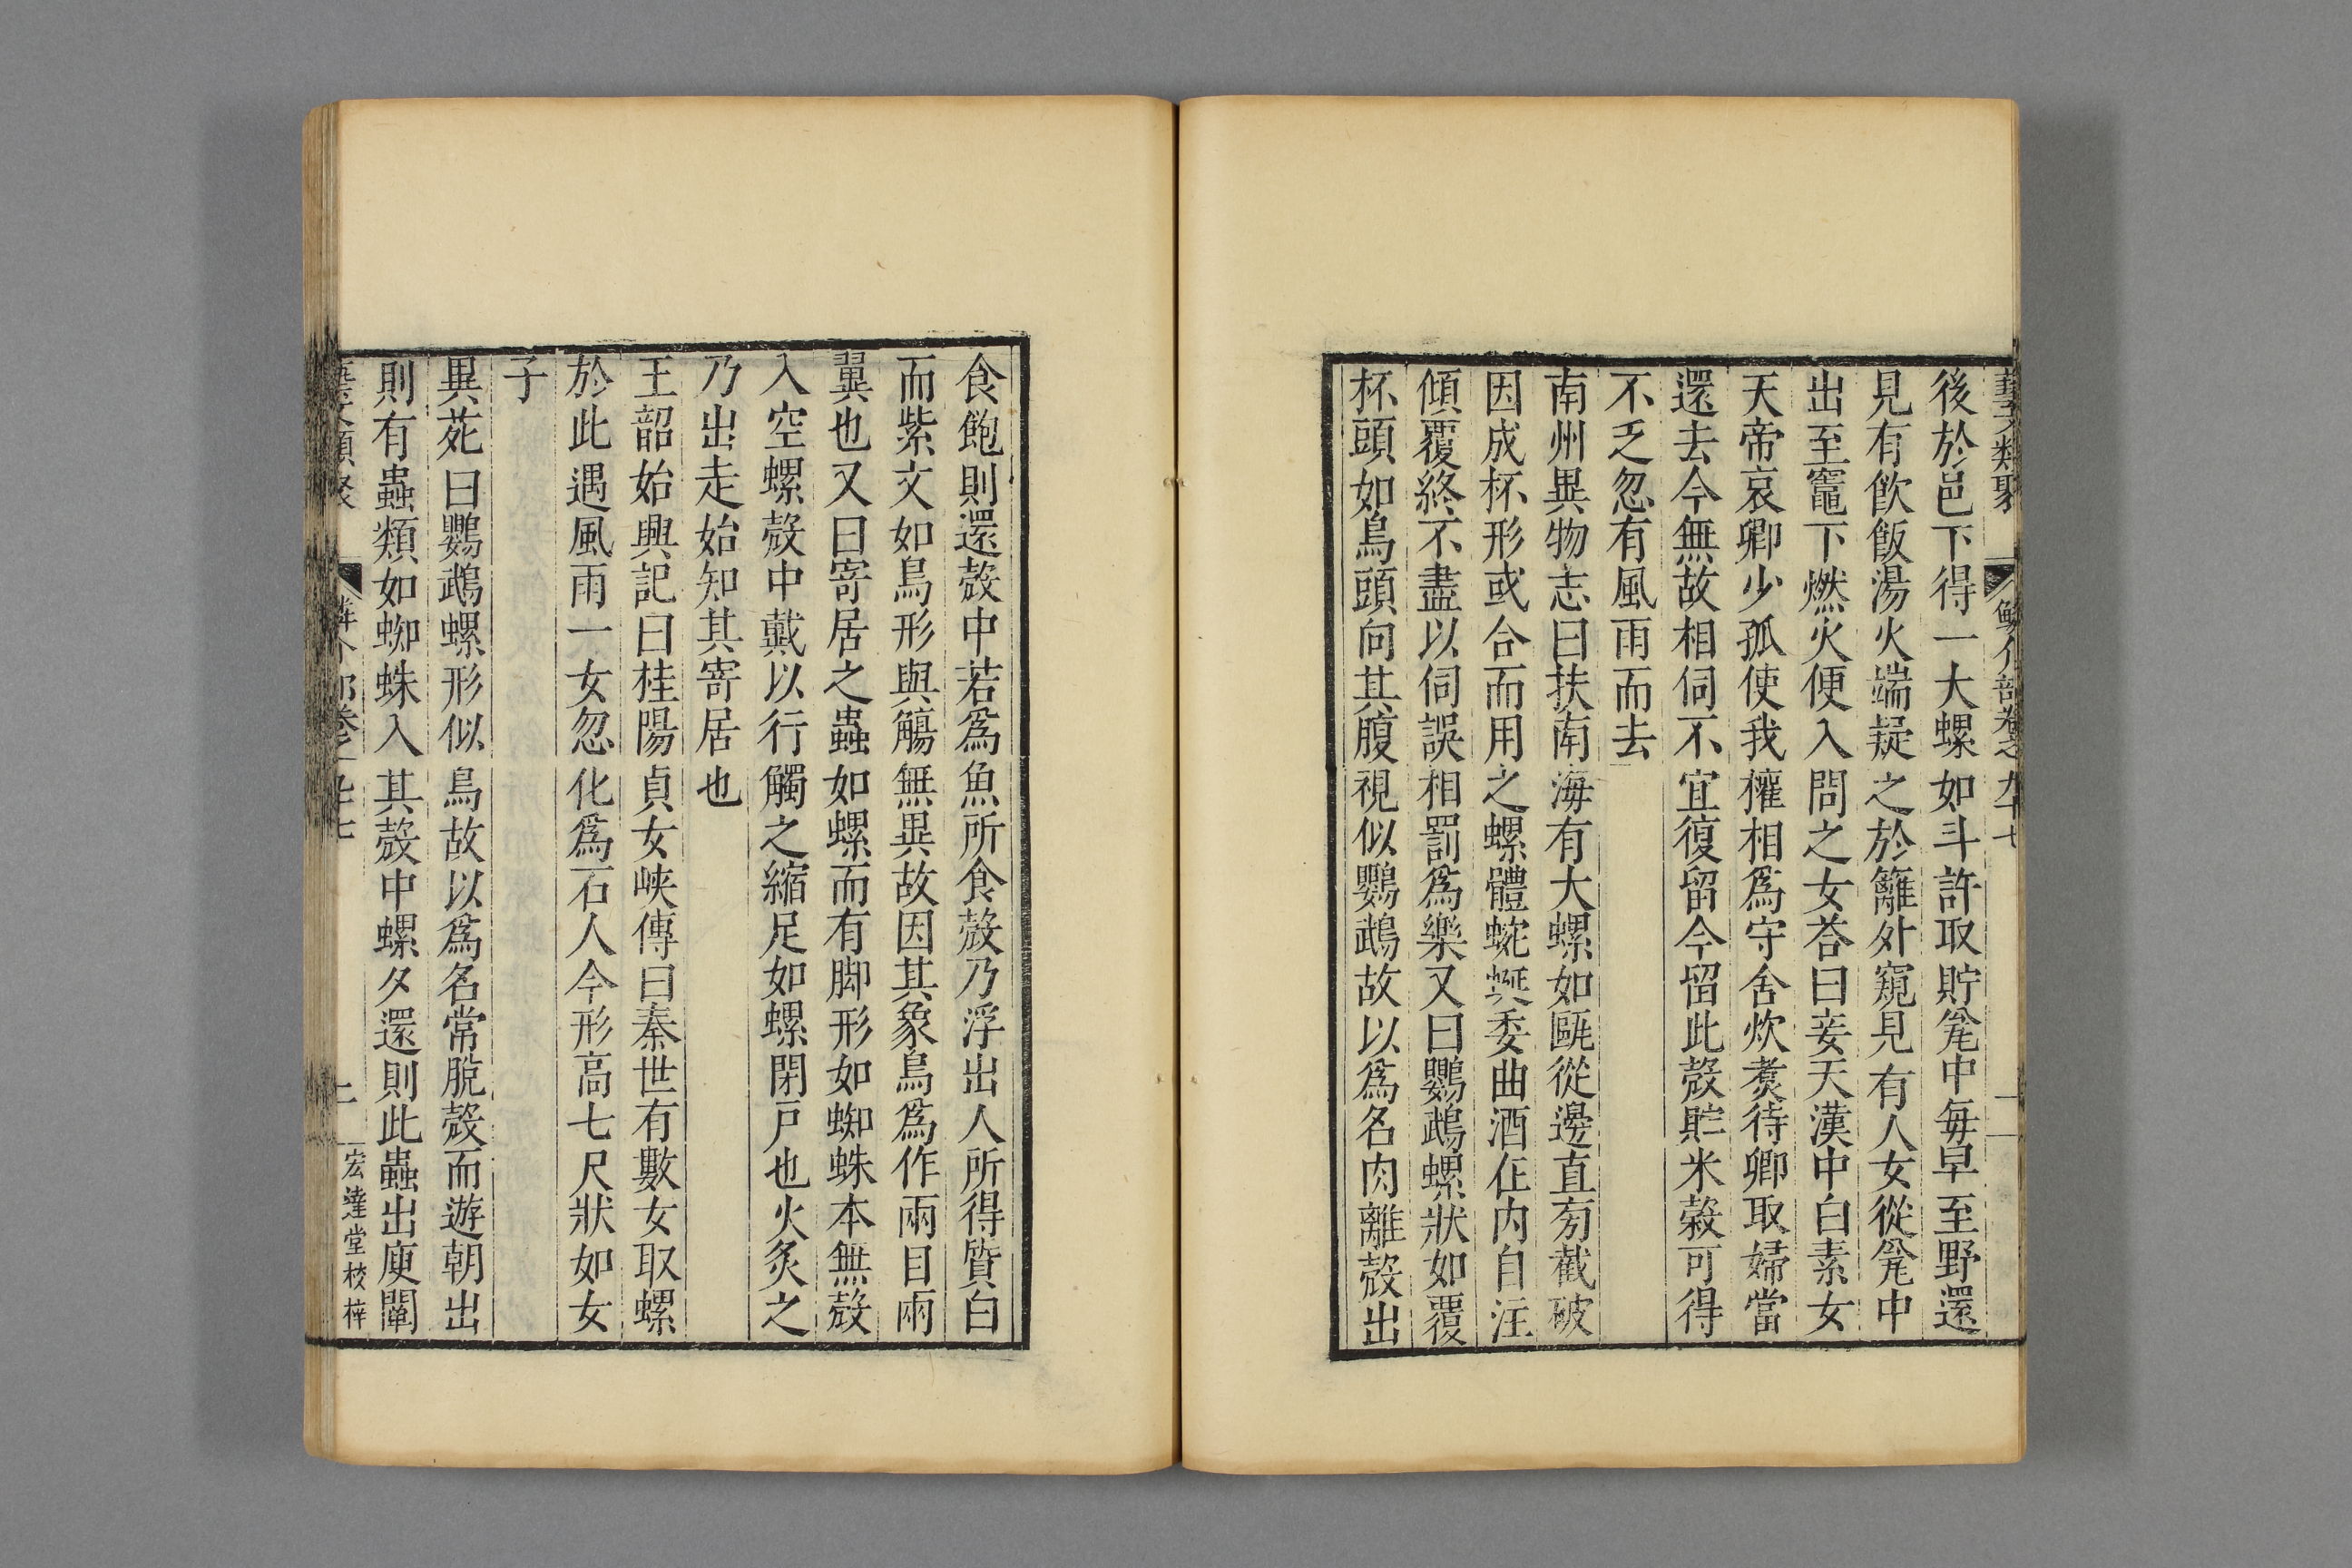 藝文類聚 鱗介部卷之九十七
後於邑下得一大螺如斗許取貯甕中每早至野還
見有飲飯湯火端疑之於籬外窺見有人女從甕中
出至竈下燃火便入問之女荅曰妾天漢中白素女
天帝哀卿少孤使我權相為守舍炊煑待卿取婦當
還去今無故相伺不宜復留今留此殼貯米糓可得
不乏忽有風雨而去
南州異物志曰扶南海有大螺如甌從邊直旁截破
因成杯形或合而用之螺體蜿蜒委曲酒在内自注
傾覆終不盡以伺誤相罰為樂又曰鸚鵡螺狀如覆
杯頭如鳥頭向其腹視似鸚鵡故以為名肉離殼出
食飽則還殼中若為魚所食殼乃浮出人所得質白
而紫文如鳥形與觴無異故因其象鳥為作兩目兩
翼也又曰寄居之蟲如螺而有脚形如蜘蛛本無殼
入空螺殼中戴以行觸之縮足如螺閉戸也火炙之
乃出走始知其寄居也
王韶始興記曰桂陽貞女峽傳曰秦世有數女取螺
於此遇風雨一女忽化為石人今形高七尺狀如女
子
異苑曰鸚鵡螺形似鳥故以為名常脫殼而遊朝出
則有蟲類如蜘蛛入其殼中螺夕還則此蟲出庾闡
類聚 鱗介部卷之九十七 宏達堂校梓